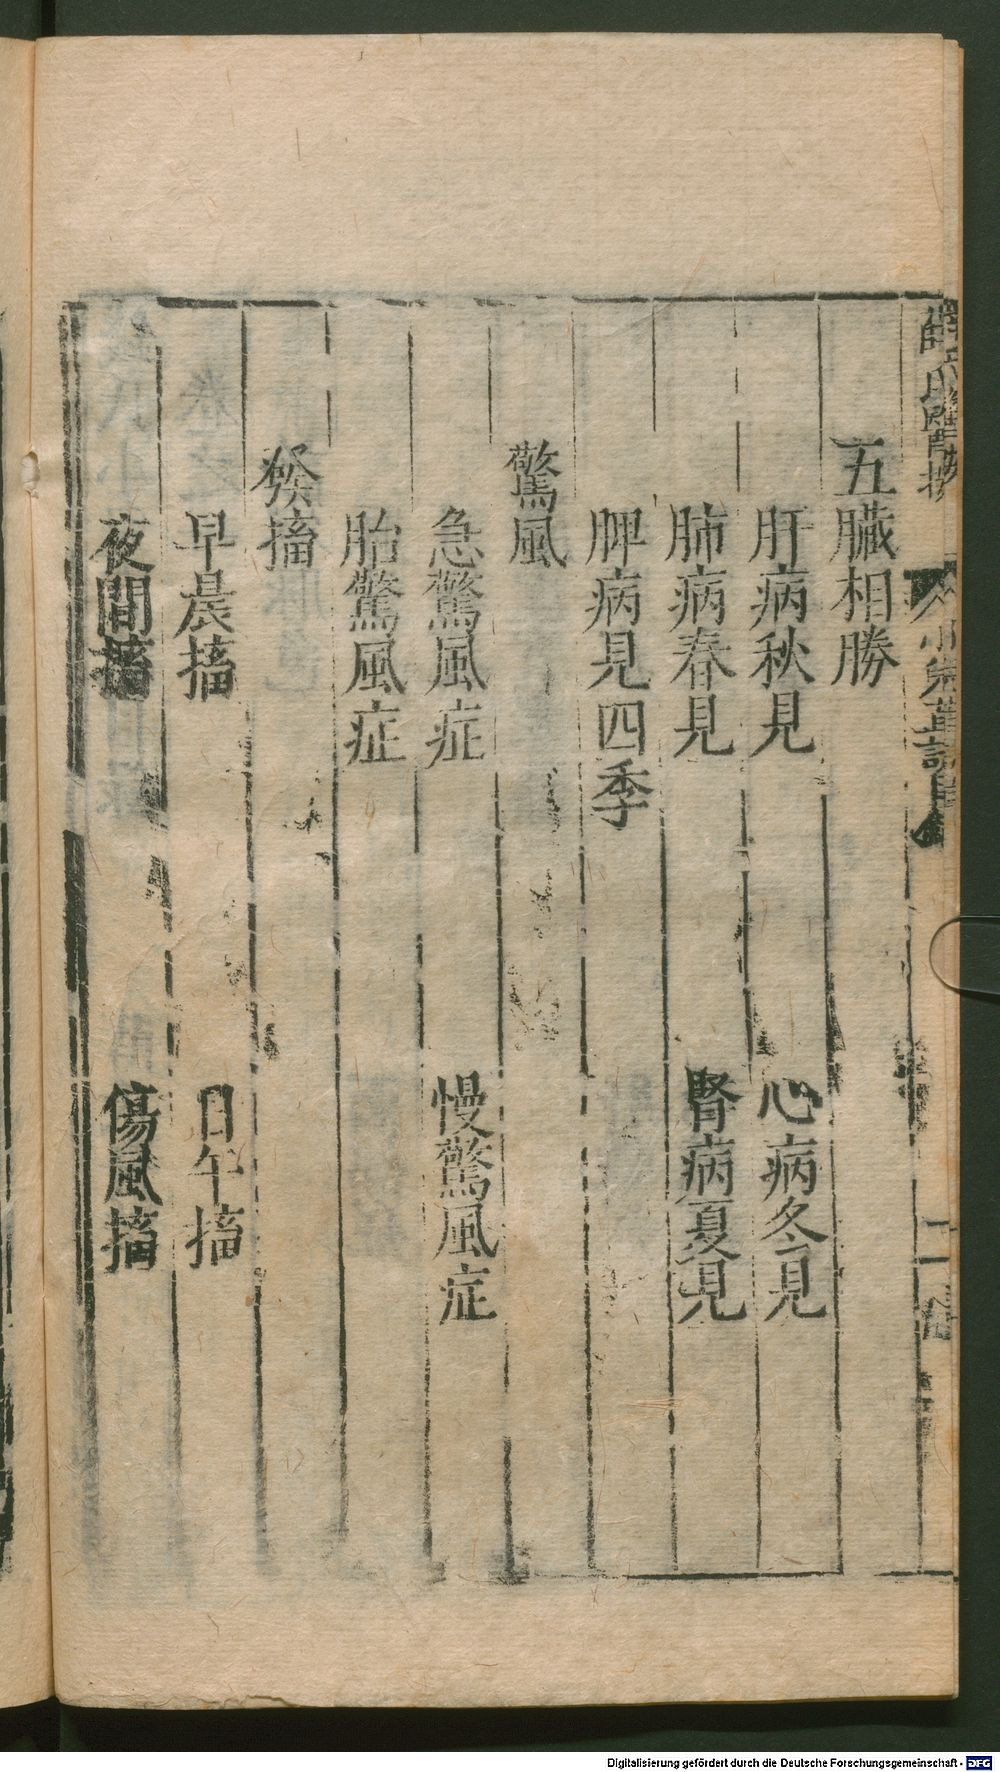 五臟相勝
肝病秋見　心病冬見
肺病春見　腎病夏見
脾病見四季
驚風
急驚風症　慢驚風症
胎驚風症
發搐
早晨搐　日午搐
夜間搐　傷風搐
Digitalisierung gefördert durch die Deutsche Forschungsgemeinschaft - DFG